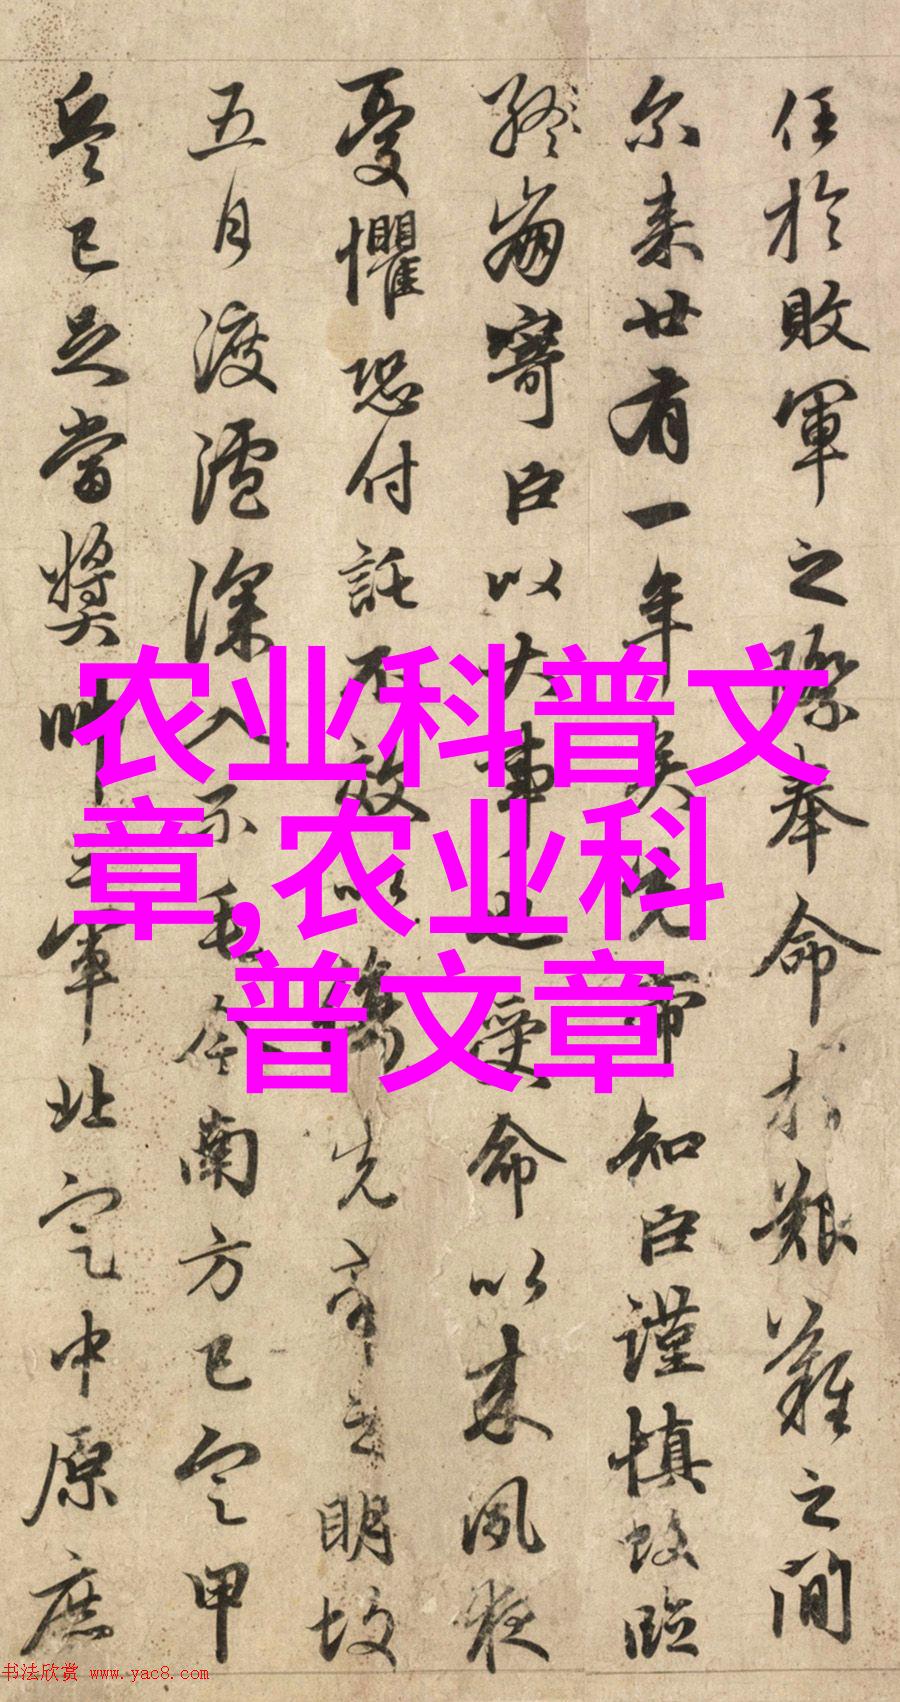 任於敗軍之際奉命於艱難之間
尔来廿有一年矣先帝知臣謹慎故臨
終崩寄臣以大事也受命以来夙夜
憂懼恐付託不效以傷先帝之明故
五月渡瀘深入不毛今南方已定甲
兵已足當獎帥三軍北定中原庶
农业科普文
章,农业科
普文章
书法欣赏 www.yac8.com